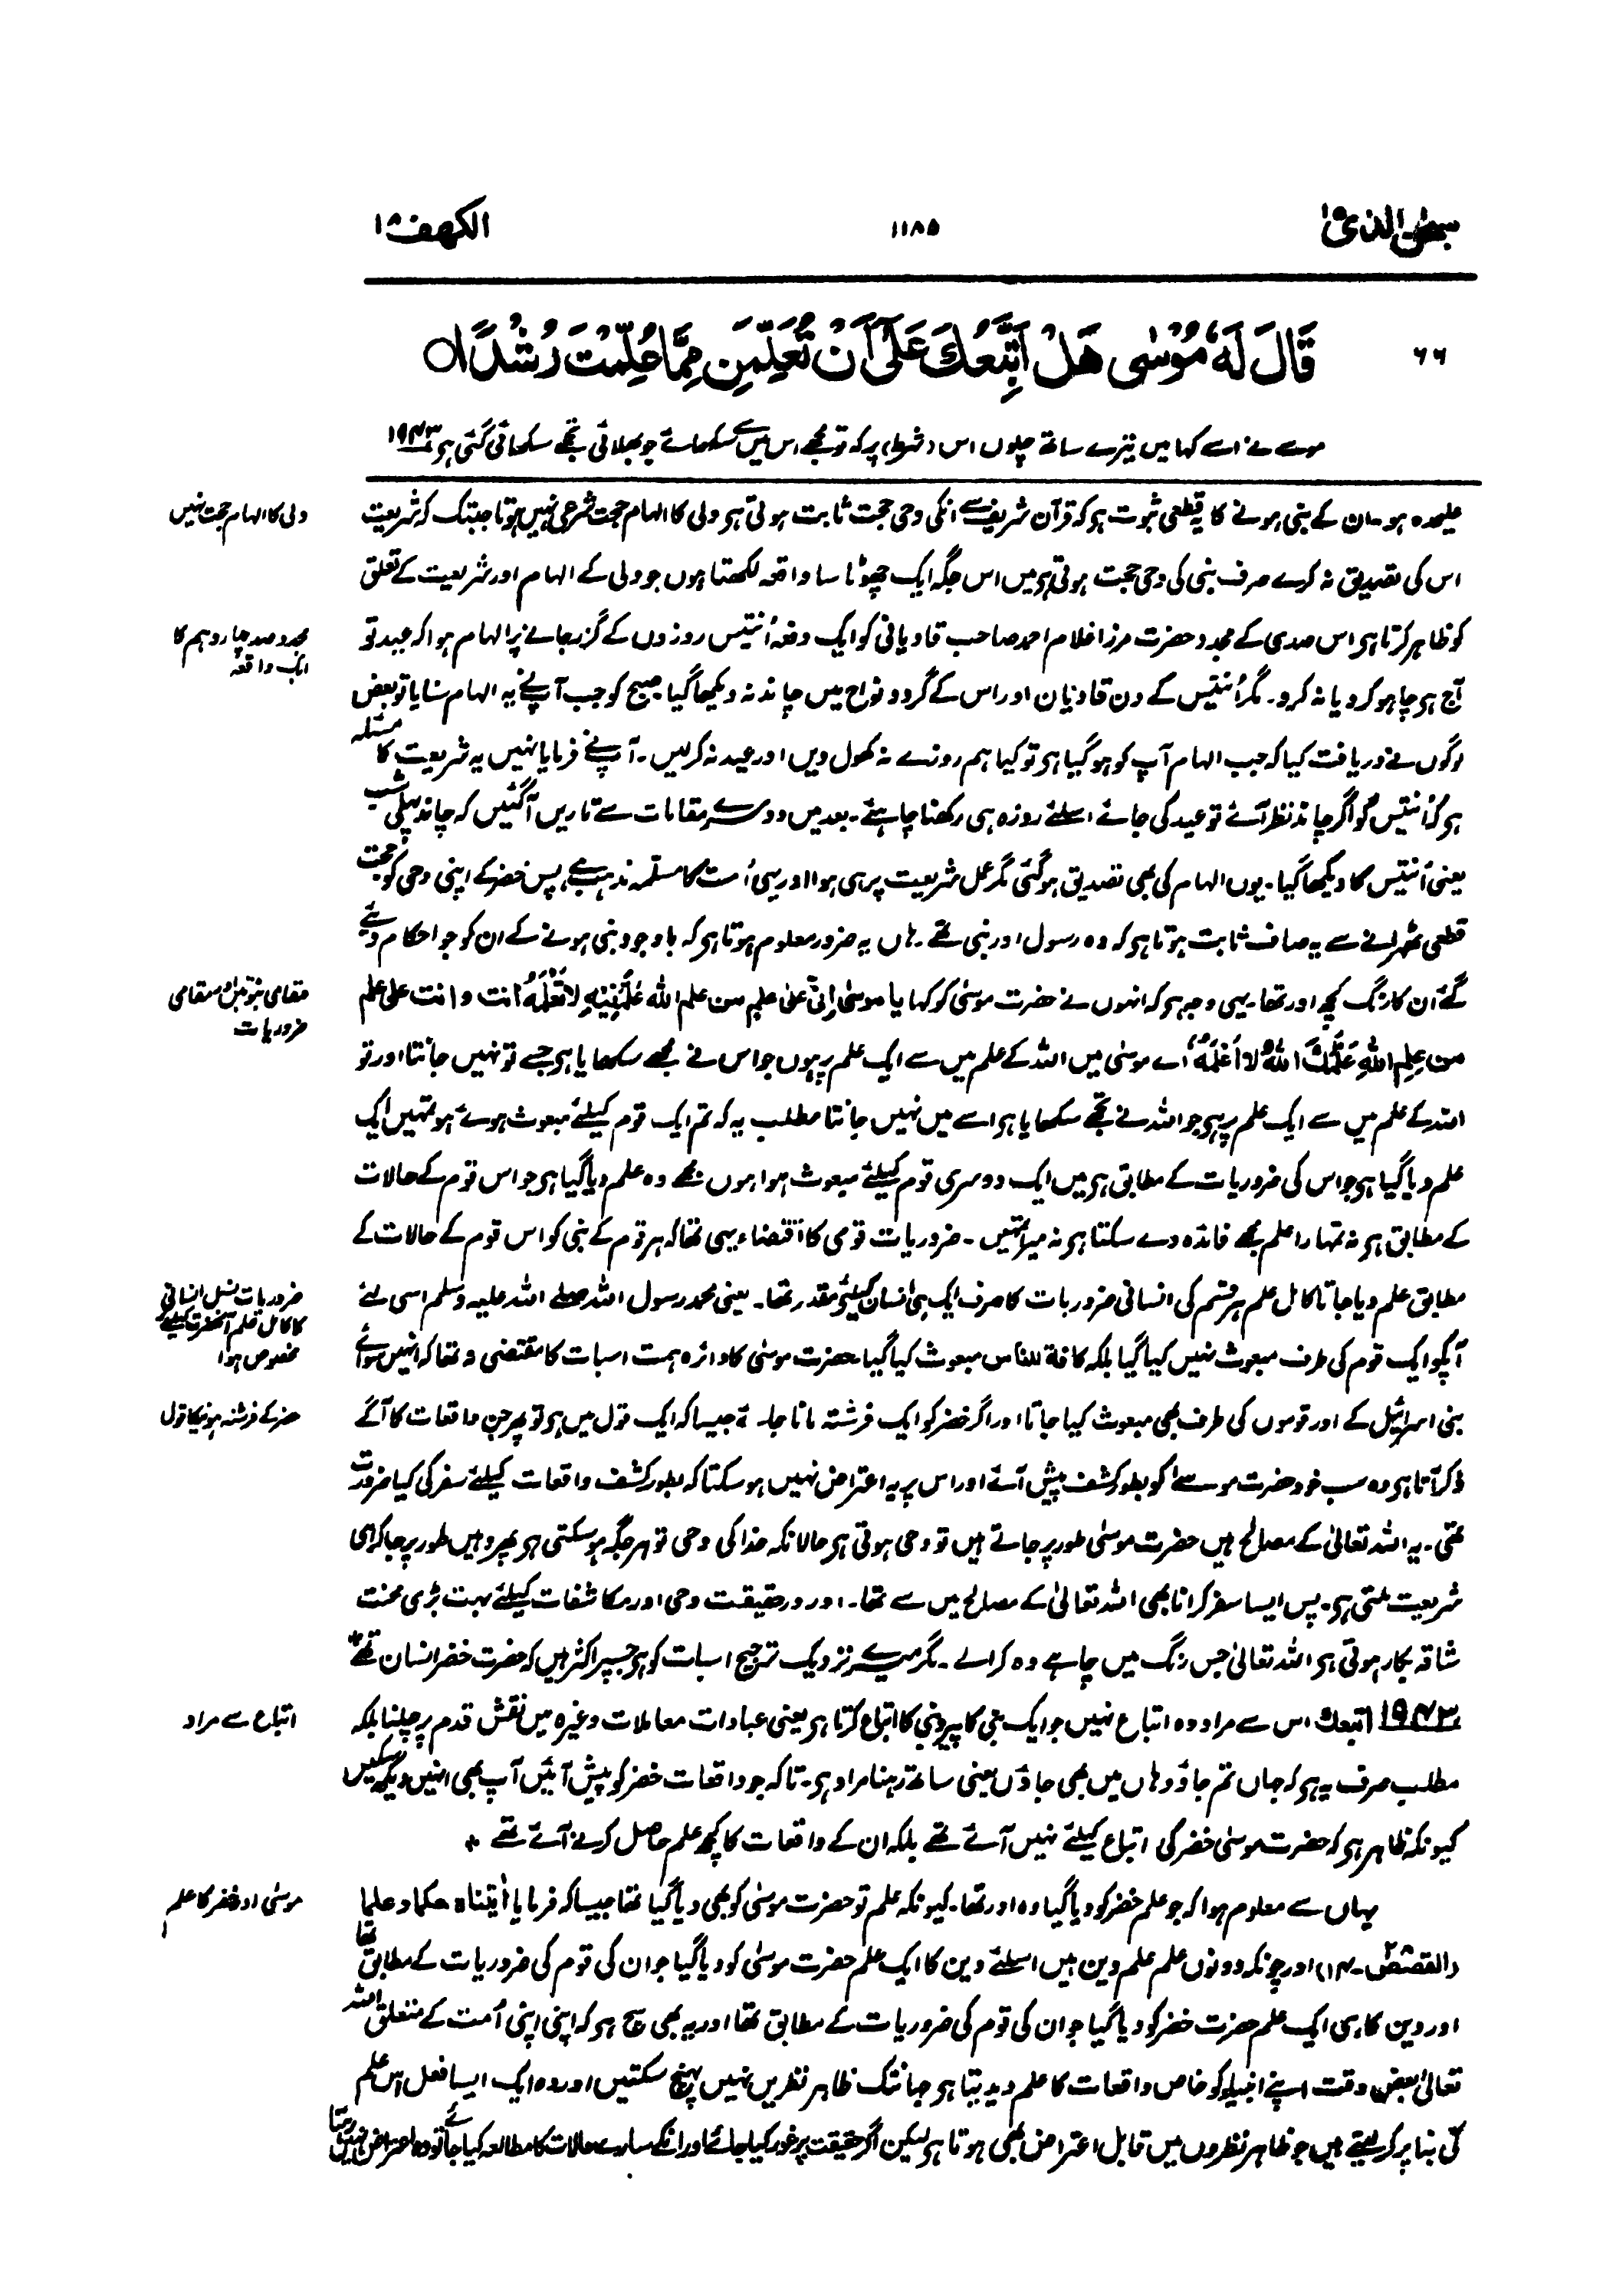 سبحٰن الذی ۱۵
۱۱۸۵
الکهف ۱۸
۶۶
قَالَ لَهٗ مُوْسٰى هَلْ اَتَّبِعُكَ عَلٰٓى اَنْ تُعَلِّمَنِ مِمَّا عُلِّمْتَ رُشْدًا○
موسے نے اسے کہا میں تیرے ساتھ چلوں اس (شرط) پر کہ تو مجھے اس میں سے سکھائے جو بھلائی تجھے سکھائی گئی ہر ۱۹۴۳
علیحدہ ہو۔ ان کے نبی ہونے کا یہ قطعی ثبوت ہر کہ قرآن شریف سے انکی وحی حجت ثابت ہوتی ہر ولی کا الہام حجت شرعی نہیں ہوتا جبتک کہ شریعت
ولی کا الہام حجت نہیں
اس کی تصدیق نہ کرے صرف نبی کی وحی حجت ہوتی ہر میں اس جگہ ایک چھوٹا سا واقعہ لکھتا ہوں جو ولی کے الہام اور شریعت کے تعلق
کو ظاہر کرتا ہر اس صدی کے مجدد حضرت مرزا غلام احمد صاحب قادیانی کو ایک دفعہ اُنتیس روزوں کے گزر جانے پر الہام ہوا کہ عید تو
مجدد صد چاردہم کا
ایک واقعہ
آج ہر چاہو کرو یا نہ کرو۔ مگر اُنتیس کے دن قادیان اور اس کے گرد و نواح میں چاند نہ دیکھا گیا صبح کو جب آپنے یہ الہام سنایا تو بعض
لوگوں نے دریافت کیا کہ جب الہام آپ کو ہو گیا ہر تو کیا ہم روزے نہ کھول دیں اور عید نہ کرلیں۔ آپنے فرمایا نہیں یہ شریعت کا مسئلہ
ہر کہ اُنتیس کو اگر چاند نظر آئے تو عید کی جائے اسلئے روزہ ہی رکھنا چاہئے۔ بعد میں دوسرے مقامات سے تاریں آگئیں کہ چاند پہلی شب
یعنی اُنتیس کا دیکھا گیا۔ یوں الہام کی بھی تصدیق ہو گئی مگر عمل شریعت پر ہی ہوا اور یہی اُمت کا مسلّمہ مذہب ہے، پس خضر کے اپنی وحی کو حجت
قطعی ٹھہرانے سے یہ صاف ثابت ہوتا ہر کہ وہ رسول اور نبی تھے۔ ہاں یہ ضرور معلوم ہوتا ہر کہ باوجود نبی ہونے کے ان کو جو احکام دئے
گئے اُن کا رنگ کچھ اور تھا۔ یہی وجہ ہر کہ انہوں نے حضرت موسیٰ کو کہا یا موسیٰ اِنّی علیٰ علم من علم اللہ عَلَّمَنِیْهِ لا تَعْلَمُهٗ انت و انت علی علم
مقامی نبوتیں اور مقامی
ضروریات
من عِلمِ اللهِ عَلَّمَكَ اللهُ لا اَعْلَمُهٗ اے موسیٰ میں اللہ کے علم میں سے ایک علم پر ہوں جو اس نے مجھے سکھایا ہر جسے تو نہیں جانتا اور تو
اللہ کے علم میں سے ایک علم پر ہر جو اللہ نے تجھے سکھایا ہر اسے میں نہیں جانتا مطلب یہ کہ تم ایک قوم کیلئے مبعوث ہوئے ہو تمہیں ایک
علم دیا گیا ہر جو اس کی ضروریات کے مطابق ہر میں ایک دوسری قوم کیلئے مبعوث ہوا ہوں مجھے وہ علم دیا گیا ہر جو اس قوم کے حالات
کے مطابق ہر نہ تمہارا علم مجھے فائدہ دے سکتا ہر نہ میرا تمہیں۔ ضروریات قومی کا اقتضاء یہی تھا کہ ہر قوم کے نبی کو اس قوم کے حالات کے
مطابق علم دیا جاتا کامل علم ہر قسم کی انسانی ضروریات کا صرف ایک ہی انسان کیلئے مقدر تھا۔ یعنی محمد رسول اللہ صلے اللہ علیہ وسلم اسی لئے
ضروریات نسل انسانی
کا کامل علم آنحضرت کیلئے
مخصوص ہوا
آپکو ایک قوم کی طرف مبعوث نہیں کیا گیا بلکہ کافة للناس مبعوث کیا گیا حضرت موسیٰ کا دائرہ ہمت اسبات کا مقتضی نہ تھا کہ انہیں سوائے
بنی اسرائیل کے اور قوموں کی طرف بھی مبعوث کیا جاتا اور اگر خضر کو ایک فرشتہ مانا جائے جیسا کہ ایک قول میں ہر تو پھر جن واقعات کا آگے
خضر کے فرشتہ ہونیکا قول
ذکر آتا ہر وہ سب خود حضرت موسےٰ کو بطور کشف پیش آئے اور اس پر یہ اعتراض نہیں ہو سکتا کہ بطور کشف واقعات کیلئے سفر کی کیا ضرورت
تھی۔ یہ اللہ تعالیٰ کے مصالح ہیں حضرت موسیٰ طور پر جاتے ہیں تو وحی ہوتی ہر حالانکہ خدا کی وحی تو ہر جگہ ہو سکتی ہر پھر وہیں طور پر جا کر ہی
شریعت ملتی ہر۔ پس ایسا سفر کرانا بھی اللہ تعالیٰ کے مصالح میں سے تھا۔ اور درحقیقت وحی اور مکاشفات کیلئے بہت بڑی محنت
شاقہ بکار ہوتی ہر اللہ تعالیٰ جس رنگ میں چاہے وہ کرالے۔ مگر میرے نزدیک ترجیح اسبات کو ہر جسپر اکثر ہیں کہ حضرت خضر انسان تھے *
۱۹۴۳ اتبعك اس سے مراد وہ اتباع نہیں جو ایک نبی کا پیرو نبی کا اتباع کرتا ہر یعنی عبادات معاملات وغیرہ میں نقش قدم پر چلنا بلکہ
اتباع سے مراد
مطلب صرف یہ ہر کہ جہاں تم جاؤ وہاں میں بھی جاؤں یعنی ساتھ رہنا مراد ہر۔ تاکہ جو واقعات خضر کو پیش آئیں آپ بھی انہیں دیکھ سکیں
کیونکہ ظاہر ہر کہ حضرت موسیٰ خضر کی اتباع کیلئے نہیں آئے تھے بلکہ ان کے واقعات کا کچھ علم حاصل کرنے آئے تھے *
یہاں سے معلوم ہوا کہ جو علم خضر کو دیا گیا وہ اور تھا۔ کیونکہ علم تو حضرت موسیٰ کو بھی دیا گیا تھا جیسا کہ فرمایا اٰتیناہ حکما و علما
موسیٰ اور خضر کا علم
(القصصؔ ۲۸-۱۴) اور چونکہ دونوں علم علم دین ہیں اسلئے دین کا ایک علم حضرت موسیٰ کو دیا گیا جو ان کی قوم کی ضروریات کے مطابق تھا
اور دین کا ہی ایک علم حضرت خضر کو دیا گیا جو ان کی قوم کی ضروریات کے مطابق تھا اور یہ بھی سچ ہر کہ اپنی اپنی اُمت کے متعلق اللہ
تعالیٰ بعض وقت اپنے انبیاء کو خاص واقعات کا علم دیدیتا ہر جہانتک ظاہر نظریں نہیں پہنچ سکتیں اور وہ ایک ایسا فعل اس علم
کی بنا پر کر لیتے ہیں جو ظاہر نظروں میں قابل اعتراض بھی ہوتا ہر لیکن اگر حقیقت پر غور کیا جائے اور انکے سارے حالات کا مطالعہ کیا جائے تو وہ اعتراض نہیں رہتا